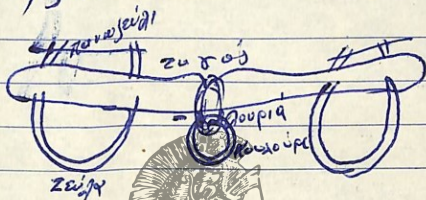 πανωζεύλι
ζυγός
λουριά
κουλούρι
ζεύλα